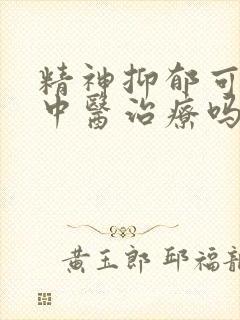 精神抑郁可
中醫治療吗
黄玉郎 邱福龍